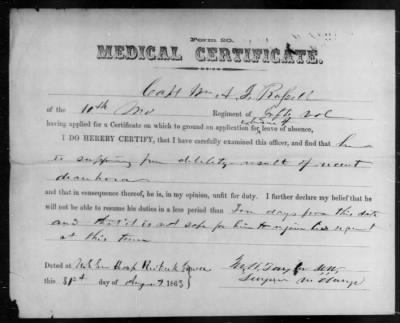 Form 20.
MEDICAL CERTIFICATE.
Capt Wm A. F. Russell
of the 10th Mo Regiment of Infty Vol
having applied for a Certificate on which to ground an application for extension of leave of absence,
I DO HEREBY CERTIFY, that I have carefully examined this officer, and find that he
is suffering from debility result of recent
diarrhoea
and that in consequence thereof, he is, in my opinion, unfit for duty. I further declare my belief that he
will not be able to resume his duties in a less period than Ten days from this date
and that it is not safe for him to rejoin his regiment
at this time
Dated at Hosp
this 31st day of August 1863
Taylor
Surgeon in Charge